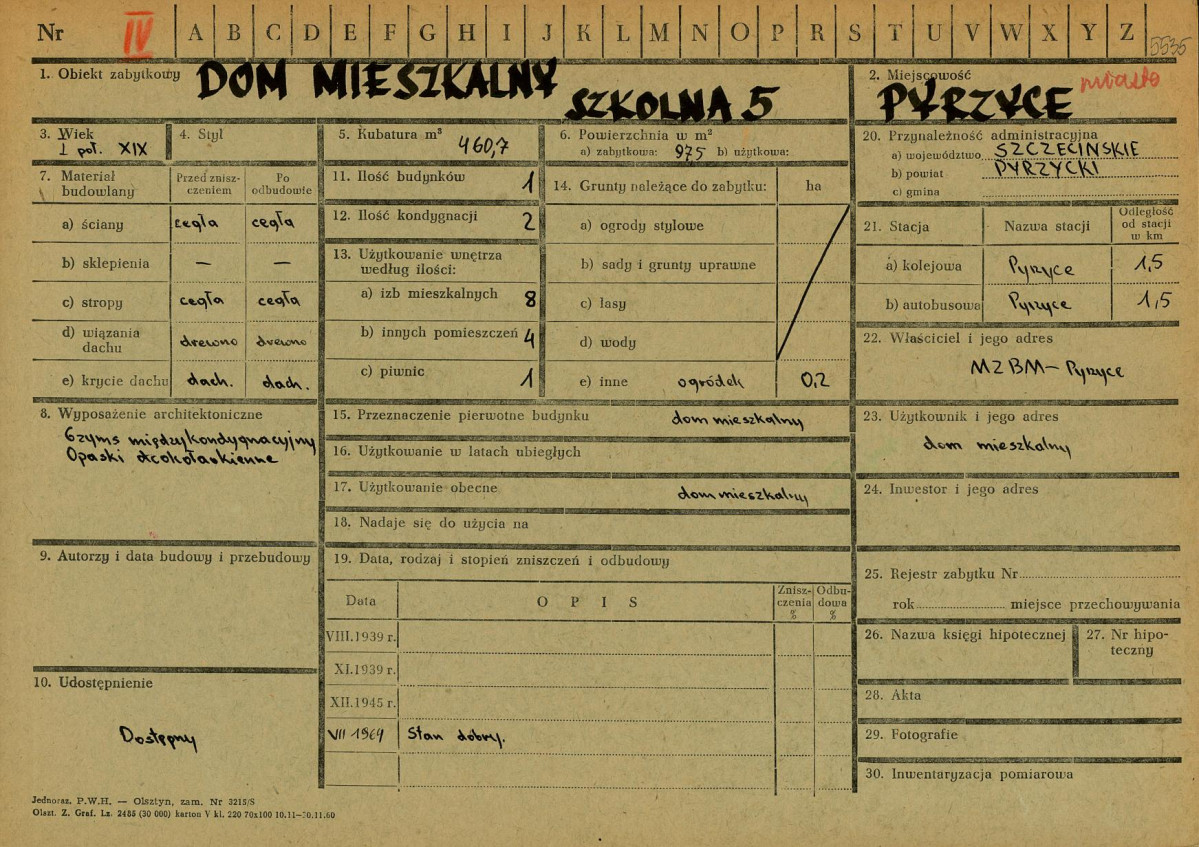 Nr IV A B C D E F G H I J K L M N O P R S T U V W X Y Z 5535
1. Obiekt zabytkowy DOM MIESZKALNY
SZKOLNA 5
2. Miejscowość miasto
PYRZYCE
3. Wiek
I poł. XIX
4. Styl
5. Kubatura m³
460,7
6. Powierzchnia w m²
a) zabytkowa: 975 b) użytkowa:
20. Przynależność administracyjna
a) województwo SZCZECIŃSKIE
b) powiat PYRZYCKI
c) gmina
7. Materiał budowlany
Przed znisz-
czeniem
Po
odbudowie
a) ściany cegła cegła
b) sklepienia — —
c) stropy cegła cegła
d) wiązania
dachu drewno drewno
e) krycie dachu dach. dach.
11. Ilość budynków 1
12. Ilość kondygnacji 2
13. Użytkowanie wnętrza
według ilości:
a) izb mieszkalnych 8
b) innych pomieszczeń 4
c) piwnic 1
14. Grunty należące do zabytku: ha
a) ogrody stylowe
b) sady i grunty uprawne
c) lasy
d) wody
e) inne ogródek 0,2
21. Stacja Nazwa stacji
Odległość
od stacji
w km
a) kolejowa Pyrzyce 1,5
b) autobusowa Pyrzyce 1,5
22. Właściciel i jego adres
MZBM – Pyrzyce
8. Wyposażenie architektoniczne
Gzyms międzykondygnacyjny
Opaski dookołaokienne
15. Przeznaczenie pierwotne budynku dom mieszkalny
16. Użytkowanie w latach ubiegłych
17. Użytkowanie obecne dom mieszkalny
18. Nadaje się do użycia na
23. Użytkownik i jego adres
dom mieszkalny
24. Inwestor i jego adres
9. Autorzy i data budowy i przebudowy
19. Data, rodzaj i stopień zniszczeń i odbudowy
Data O P I S
Znisz-
czenia
%
Odbu-
dowa
%
VIII.1939 r.
XI.1939 r.
XII.1945 r.
VII 1964 Stan dobry.
25. Rejestr zabytku Nr
rok miejsce przechowywania
26. Nazwa księgi hipotecznej
27. Nr hipo-
teczny
10. Udostępnienie
Dostępny
28. Akta
29. Fotografie
30. Inwentaryzacja pomiarowa
Jednoraz. P.W.H. — Olsztyn, zam. Nr 3215/S
Olszt. Z. Graf. Lz. 2485 (30 000) karton V kl. 220 70x100 10.11—30.11.60